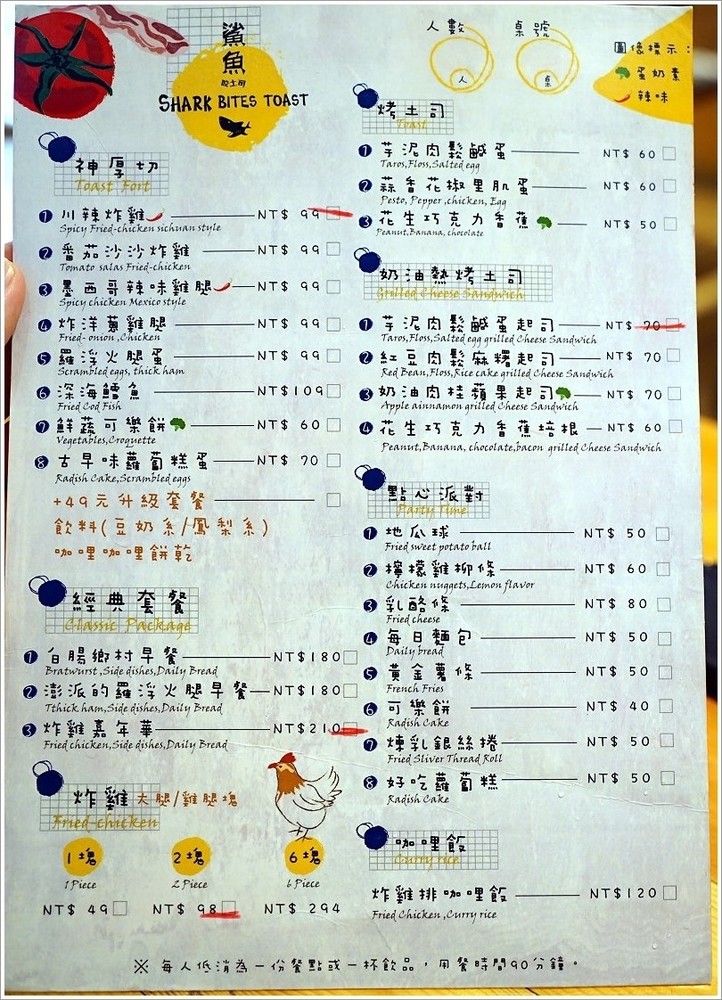 鯊魚
咬土司
SHARK BITES TOAST
人數
人
桌號
桌
圖像標示：
蛋奶素
辣味
神厚切
Toast Fort
1 川辣炸雞 NT$ 99
Spicy Fried-chicken sichuan style
2 番茄沙沙炸雞 NT$ 99
Tomato salas Fried-chicken
3 墨西哥辣味雞腿 NT$ 99
Spicy chicken Mexico style
4 炸洋蔥雞腿 NT$ 99
Fried-onion ,Chicken
5 羅浮火腿蛋 NT$ 99
Scrambled eggs, thick ham
6 深海鱈魚 NT$109
Fried Cod Fish
7 鮮蔬可樂餅 NT$ 60
Vegetables,Croquette
8 古早味蘿蔔糕蛋 NT$ 70
Radish Cake,Scrambled eggs
+49元升級套餐
飲料(豆奶系/鳳梨系)
咖哩咖哩餅乾
經典套餐
Classic Package
1 白腸鄉村早餐 NT$180
Bratwurst,Side dishes,Daily Bread
2 澎派的羅浮火腿早餐 NT$180
Tthick ham,Side dishes,Daily Bread
3 炸雞嘉年華 NT$210
Fried chicken,Side dishes,Daily Bread
炸雞 大腿/雞腿塊
Fried-chicken
1塊 2塊 6塊
1 Piece 2 Piece 6 Piece
NT$ 49 NT$ 98 NT$ 294
烤土司
Toast
1 芋泥肉鬆鹹蛋 NT$ 60
Taros,Floss,Salted egg
2 蒜香花椒里肌蛋 NT$ 60
Pesto, Pepper ,chicken, Egg
3 花生巧克力香蕉 NT$ 50
Peanut,Banana, chocolate
奶油熱烤土司
Grilled Cheese Sandwich
1 芋泥肉鬆鹹蛋起司 NT$ 70
Taros,Floss,Salted egg grilled Cheese Sandwich
2 紅豆肉鬆麻糬起司 NT$ 70
Red Bean,Floss,Rice cake grilled Cheese Sandwich
3 奶油肉桂蘋果起司 NT$ 70
Apple ainnamon grilled Cheese Sandwich
4 花生巧克力香蕉培根 NT$ 60
Peanut,Banana, chocolate,bacon grilled Cheese Sandwich
點心派對
Party Time
1 地瓜球 NT$ 50
Fried sweet potato ball
2 檸檬雞柳條 NT$ 60
Chicken nuggets,Lemon flavor
3 乳酪條 NT$ 80
Fried cheese
4 每日麵包 NT$ 50
Daily bread
5 黃金薯條 NT$ 50
French Fries
6 可樂餅 NT$ 40
Radish Cake
7 煉乳銀絲捲 NT$ 50
Fried Sliver Thread Roll
8 好吃蘿蔔糕 NT$ 50
Radish Cake
咖哩飯
Curry rice
炸雞排咖哩飯 NT$120
Fried Chicken ,Curry rice
※ 每人低消為一份餐點或一杯飲品，用餐時間90分鐘。